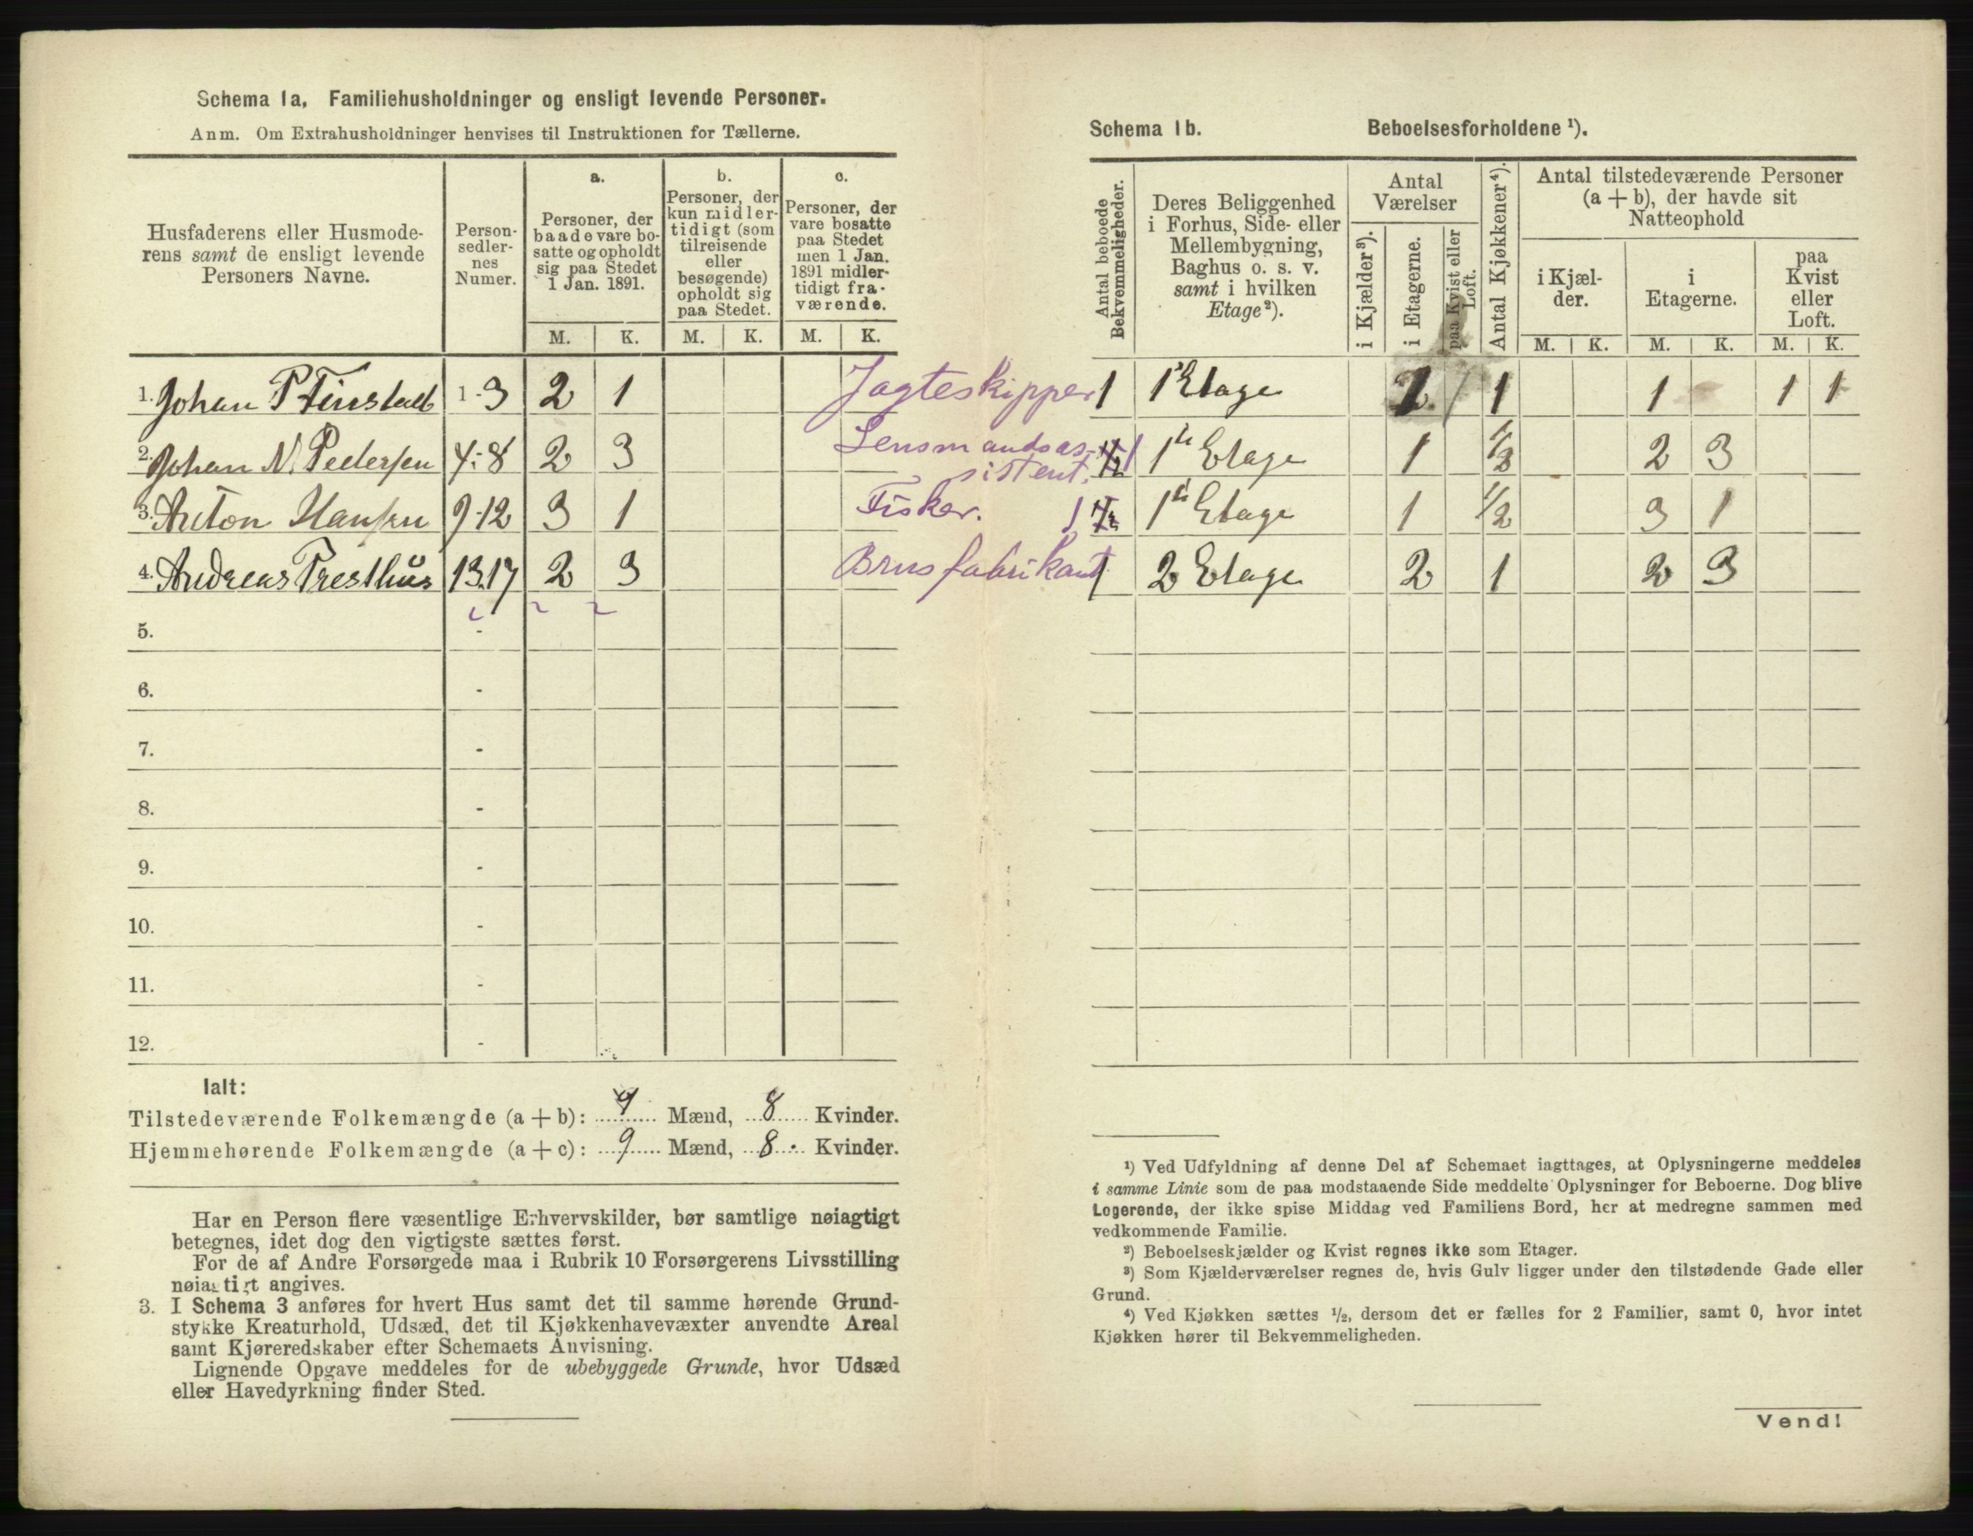 Schema 1a. Familiehusholdninger og ensligt levende Personer.
Anm. Om Extrahusholdninger henvises til Instruktionen for Tællerne.
Husfaderens eller Husmoderens samt de ensligt levende Personers Navne.
Person-sedler-nes Numer.
a.
Personer, der baade vare bosatte og opholdt sig paa Stedet 1 Jan. 1891.
b.
Personer, der kun midlertidigt (som tilreisende eller besøgende) opholdt sig paa Stedet.
c.
Personer, der vare bosatte paa Stedet men 1 Jan. 1891 midlertidigt fraværende.
M. K. M. K. M. K.
1. Johan P Finstad 1-3 2 1 Jagteskipper
2. Johan N. Pedersen 4-8 2 3 Lensmandsassistent.
3. Anton Hansen 9-12 3 1 Fisker.
4. Andreas Presthus 13-17 2 3 Brusfabrikant
5. -
6. -
7. -
8. -
9. -
10. -
11. -
12. -
Ialt:
Tilstedeværende Folkemængde (a + b): 9 Mænd, 8 Kvinder.
Hjemmehørende Folkemængde (a + c): 9 Mænd, 8 Kvinder.
Har en Person flere væsentlige Erhvervskilder, bør samtlige nøiagtigt
betegnes, idet dog den vigtigste sættes først.
For de af Andre Forsørgede maa i Rubrik 10 Forsørgerens Livsstilling
nøiagtigt angives.
3. I Schema 3 anføres for hvert Hus samt det til samme hørende Grund-
stykke Kreaturhold, Udsæd, det til Kjøkkenhavevæxter anvendte Areal
samt Kjøreredskaber efter Schemaets Anvisning.
Lignende Opgave meddeles for de ubebyggede Grunde, hvor Udsæd
eller Havedyrkning finder Sted.
Schema 1b. Beboelsesforholdene ¹).
Antal beboede Bekvemmeligheder.
Deres Beliggenhed i Forhus, Side- eller Mellembygning, Baghus o. s. v. samt i hvilken Etage ²).
Antal Værelser
i Kjælder ³).
i Etagerne.
paa Kvist eller Loft.
Antal Kjøkkener ⁴).
Antal tilstedeværende Personer (a + b), der havde sit Natteophold
i Kjælder.
i Etagerne.
paa Kvist eller Loft.
M. K. M. K. M. K.
1 1 Etage 1 1 1 1 1
1 1ste Etage 1 1/2 2 3
1 1ste Etage 1 1/2 3 1
1 2 Etage 2 1 2 3
¹) Ved Udfyldning af denne Del af Schemaet iagttages, at Oplysningerne meddeles
i samme Linie som de paa modstaaende Side meddelte Oplysninger for Beboerne. Dog blive
Logerende, der ikke spise Middag ved Familiens Bord, her at medregne sammen med
vedkommende Familie.
²) Beboelseskjælder og Kvist regnes ikke som Etager.
³) Som Kjælderværelser regnes de, hvis Gulv ligger under den tilstødende Gade eller
Grund.
⁴) Ved Kjøkken sættes ½, dersom det er fælles for 2 Familier, samt 0, hvor intet
Kjøkken hører til Bekvemmeligheden.
Vend!